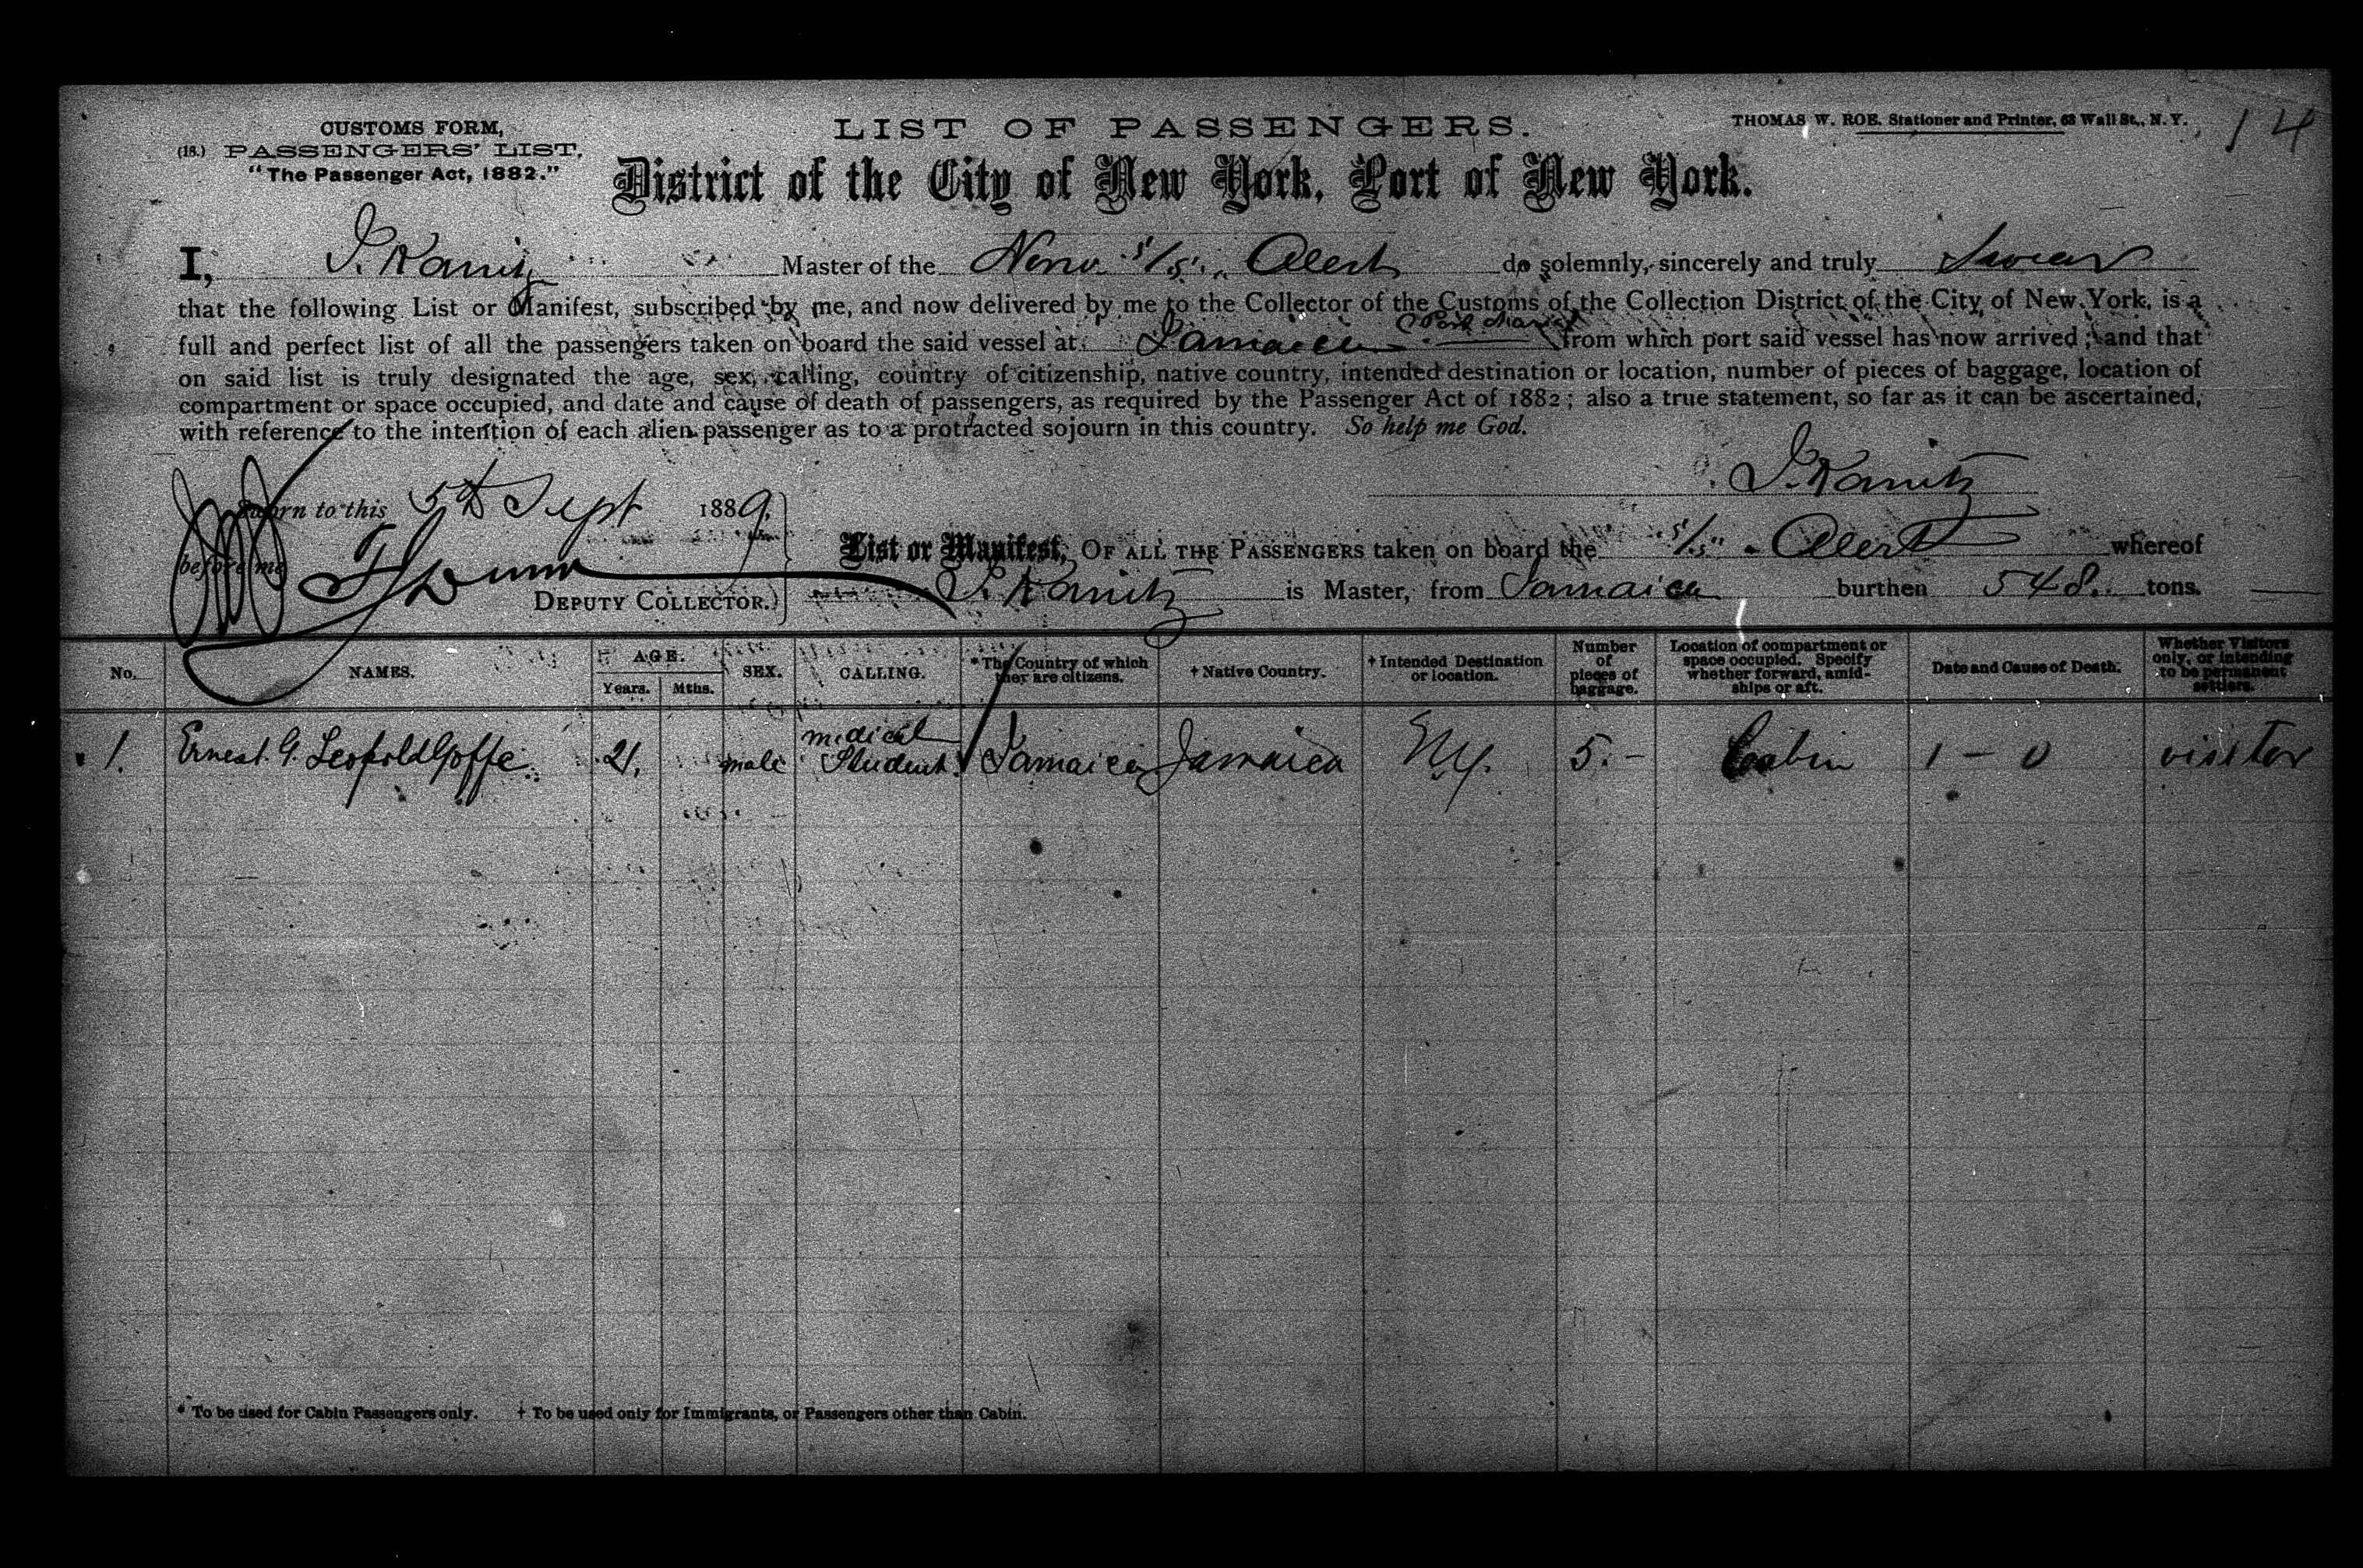 CUSTOMS FORM,
(18.) PASSENGERS' LIST,
"The Passenger Act, 1882."
LIST OF PASSENGERS.
THOMAS W. ROE, Stationer and Printer, 63 Wall St., N. Y.
14
District of the City of New York, Port of New York.
I, J. Kanitz Master of the Norw. S/S. "Alert do solemnly, sincerely and truly Swear
that the following List or Manifest, subscribed by me, and now delivered by me to the Collector of the Customs of the Collection District of the City of New York, is a
full and perfect list of all the passengers taken on board the said vessel at Jamaica (Port Maria) from which port said vessel has now arrived; and that
on said list is truly designated the age, sex, calling, country of citizenship, native country, intended destination or location, number of pieces of baggage, location of
compartment or space occupied, and date and cause of death of passengers, as required by the Passenger Act of 1882; also a true statement, so far as it can be ascertained,
with reference to the intention of each alien passenger as to a protracted sojourn in this country. So help me God.
J. Kanitz
Sworn to this 5th Sept 1889,
before me
DEPUTY COLLECTOR.
List or Manifest, OF ALL THE PASSENGERS taken on board the S/S" Alert whereof
J. Kanitz is Master, from Jamaica burthen 548. tons.
No. NAMES. AGE. Years. Mths. SEX. CALLING. * The Country of which they are citizens. † Native Country. † Intended Destination or location. Number of pieces of baggage. Location of compartment or space occupied. Specify whether forward, amidships or aft. Date and Cause of Death. Whether Visitors only, or intending to be permanent settlers.
1. Ernest. G. Leopold Goffe. 21. male medical Student. Jamaica Jamaica N.Y. 5.- Cabin 1 - 0 visitor
* To be used for Cabin Passengers only. † To be used only for Immigrants, or Passengers other than Cabin.